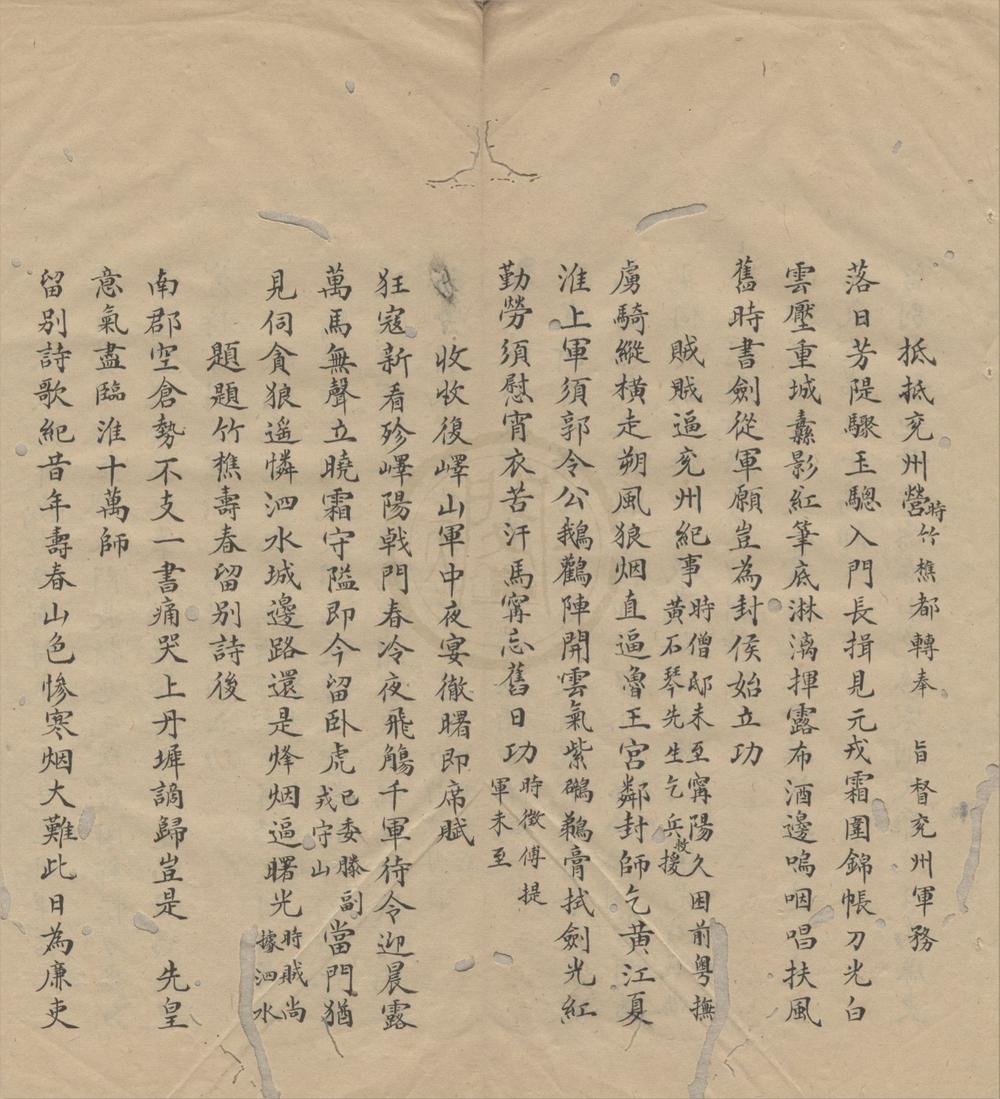 抵抵兖州營時竹樵都轉奉　旨督兖州軍務
落日芳隄驟玉驄入門長揖見元戎霜圍錦帳刀光白
雲壓重城纛影紅筆底淋漓揮露布酒邊嗚咽唱扶風
舊時書劍從軍願豈為封侯始立功
賊賊逼兖州紀事時僧邸未至寧陽久困前粵撫黃石琴先生乞兵救援
虜騎縱橫走朔風狼烟直逼魯王宮鄰封師乞黃江夏
淮上軍須郭令公鵝鸛陣開雲氣紫鷿鵜膏拭劍光紅
勤勞須慰宵衣苦汗馬寧忘舊日功時徵傅提軍未至
收收復嶧山軍中夜宴徹曙即席賦
狂寇新看殄嶧陽戟門春冷夜飛觴千軍待令迎晨露
萬馬無聲立曉霜守隘即今留卧虎已委滕副戎守山當門猶
見伺貪狼遙憐泗水城邊路還是烽烟逼曙光時賊尚據泗水
題題竹樵壽春留别詩後
南郡空倉勢不支一書痛哭上丹墀謫歸豈是　先皇
意氣盡臨淮十萬師
留别詩歌紀昔年壽春山色慘寒烟大難此日為廉吏